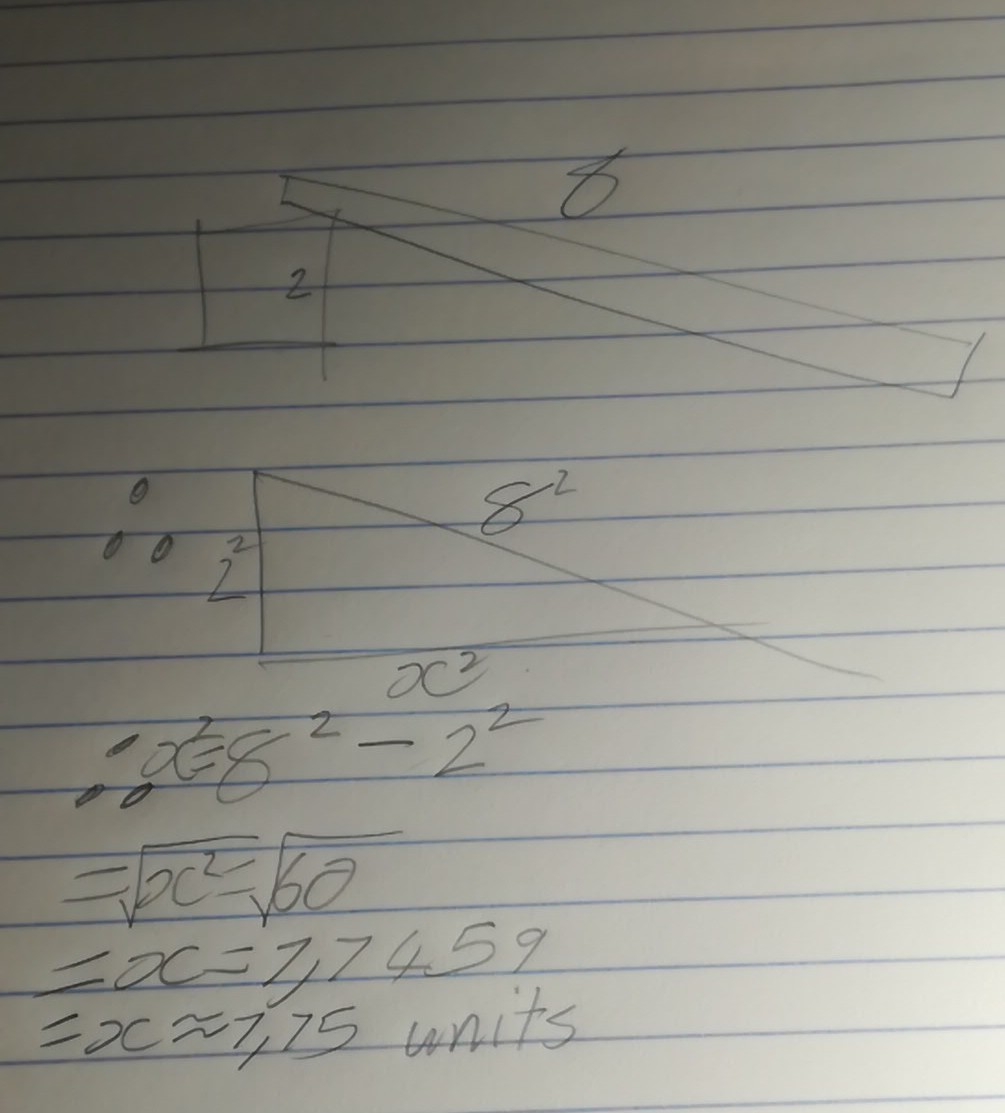 8
2
∴
8²
2²
x²
∴ x²=8² - 2²
=√x²=√60
=x=7,7459
=x≈7,75 units